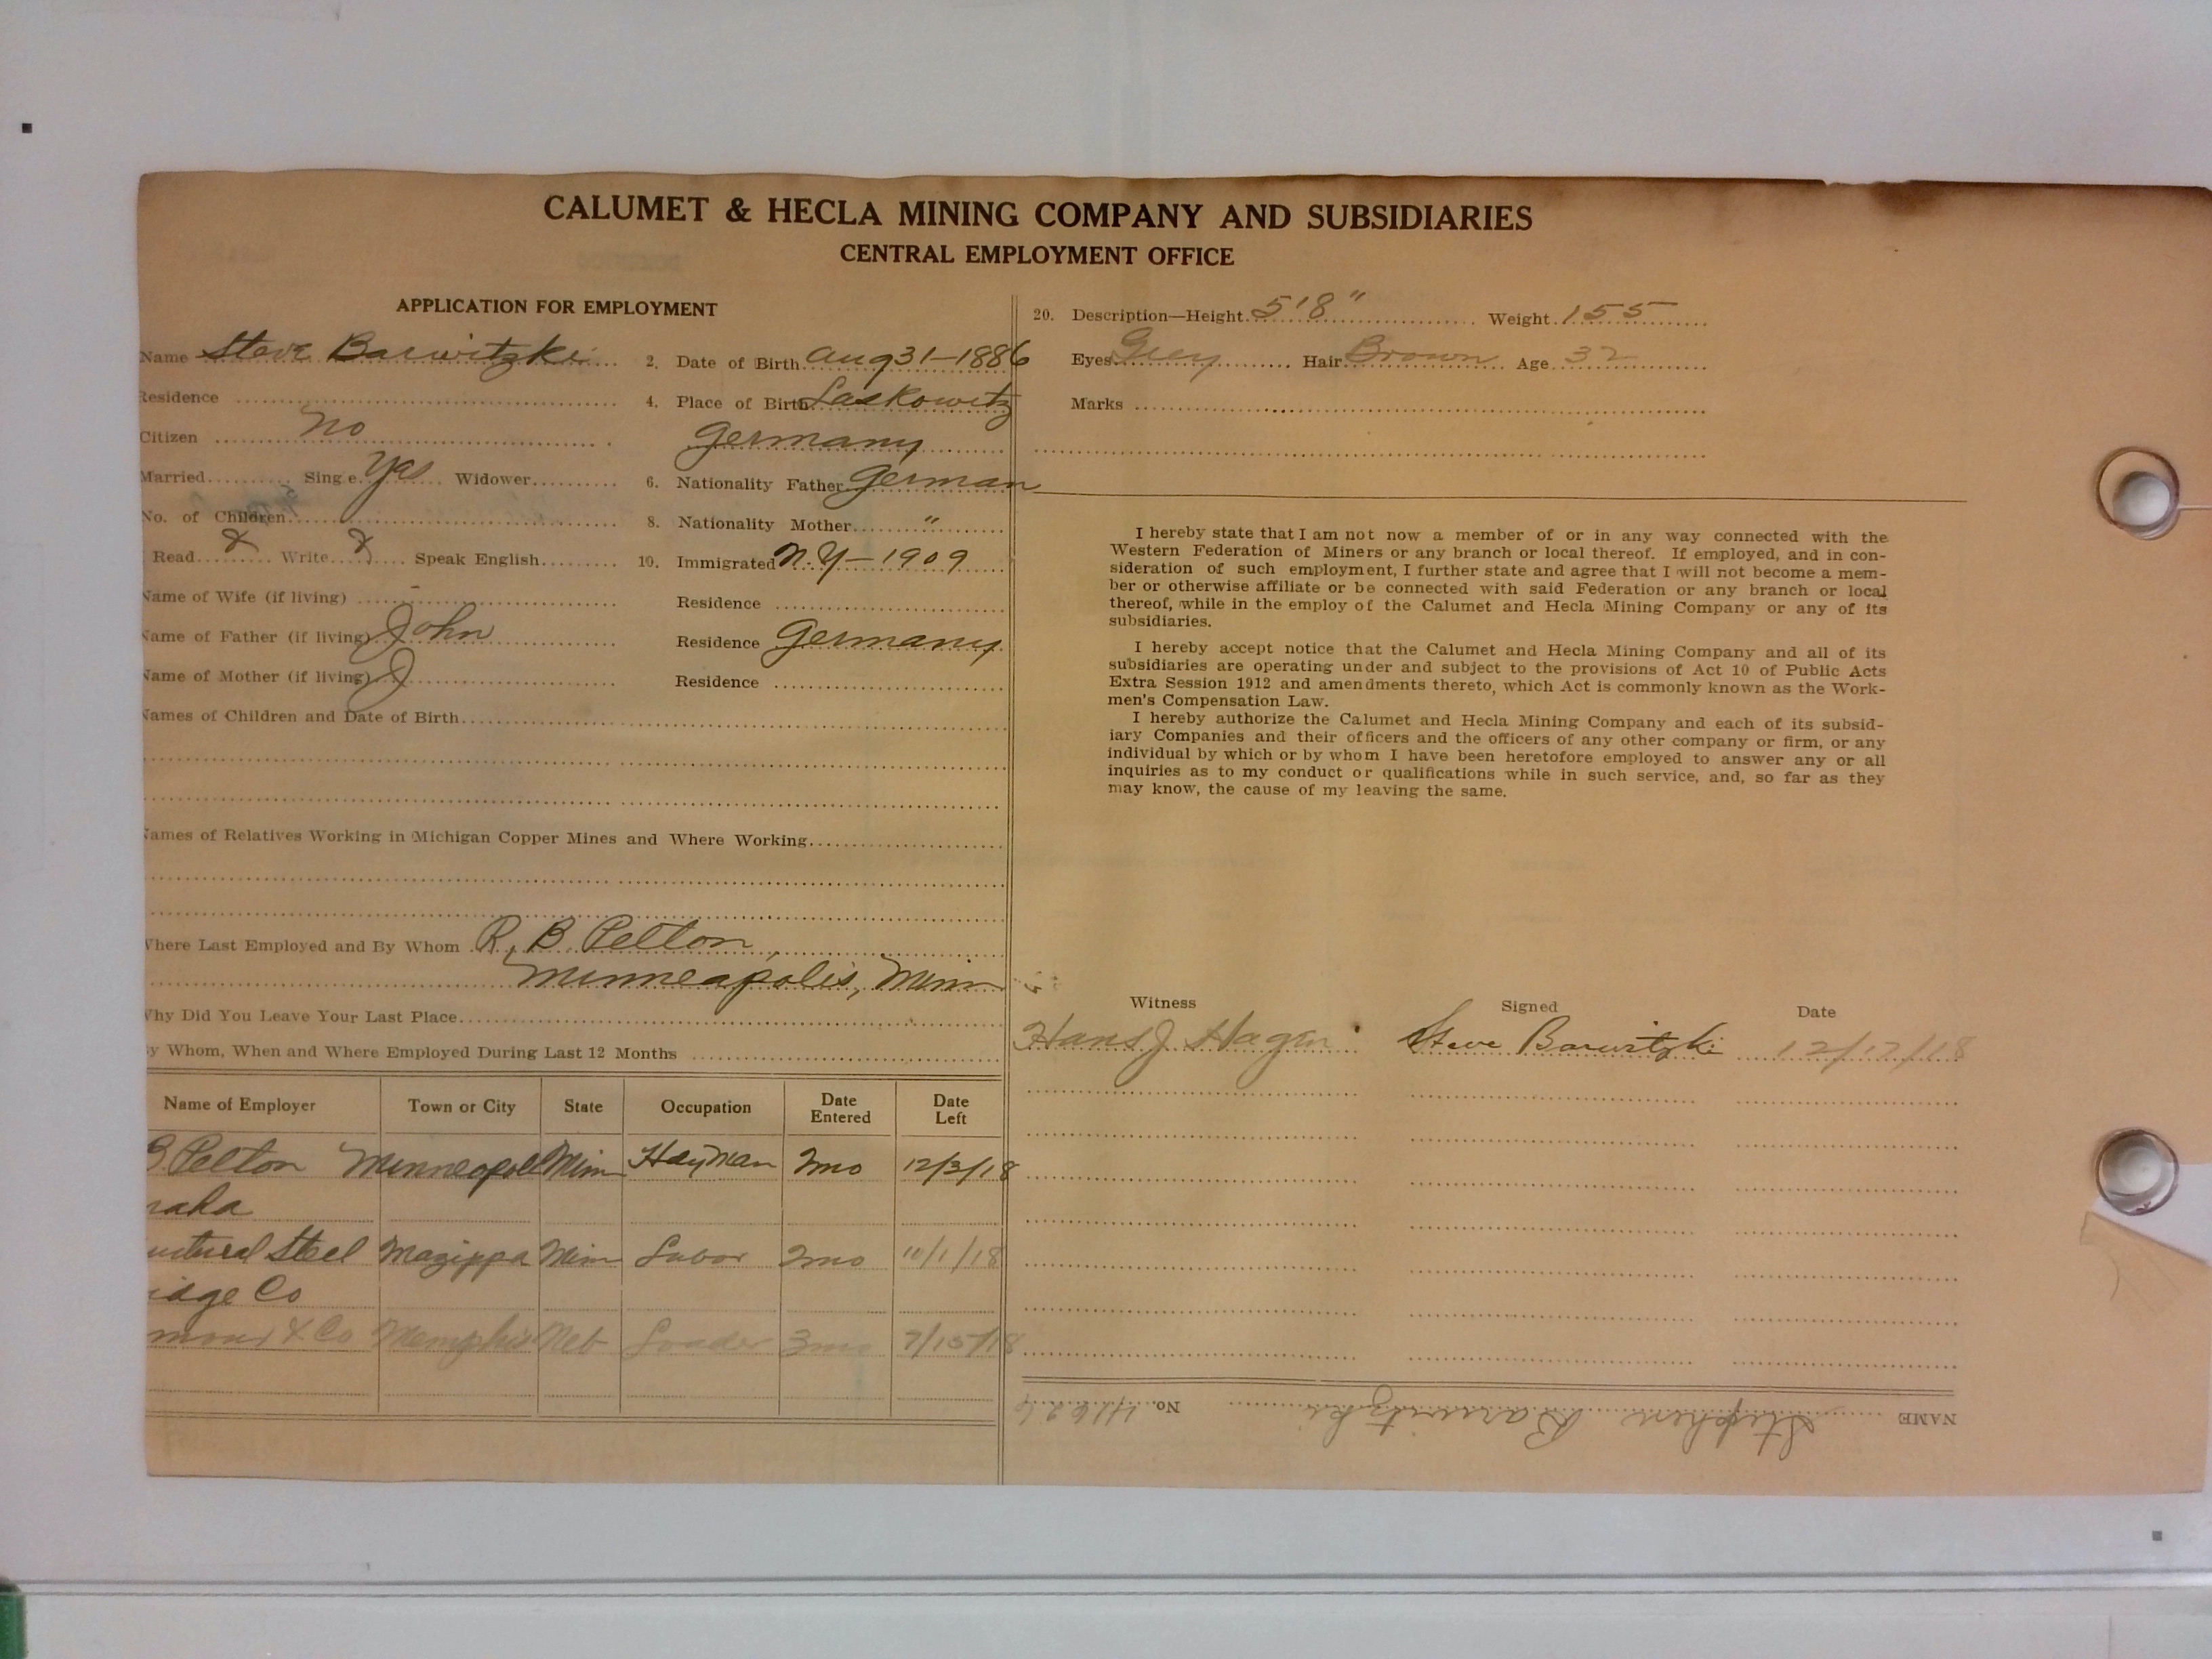 CALUMET & HECLA MINING COMPANY AND SUBSIDIARIES
CENTRAL EMPLOYMENT OFFICE
APPLICATION FOR EMPLOYMENT
Name Steve Barwitzki 2. Date of Birth Aug 31-1886
Residence 4. Place of Birth Laskowitz
Citizen no Germany
Married Sing e. Yes Widower 6. Nationality Father German
No. of Children 8. Nationality Mother "
Read Write Speak English 10. Immigrated N.Y-1909
Name of Wife (if living) - Residence
Name of Father (if living) John Residence Germany
Name of Mother (if living) Residence
Names of Children and Date of Birth
Names of Relatives Working in Michigan Copper Mines and Where Working
Where Last Employed and By Whom R. B. Pelton
Minneapolis, Minn
Why Did You Leave Your Last Place
By Whom, When and Where Employed During Last 12 Months
Name of Employer Town or City State Occupation Date Entered Date Left
B Pelton Minneapoli Minn Hayman 2mo 12/3/18
maha
uctural Steel Mazippa Minn Labor 2mo 10/1/18
idge Co
mour & Co Memphis Neb Loader 3mo 7/15/18
20. Description—Height 5'8" Weight 155
Eyes Grey Hair Brown Age 32
Marks
I hereby state that I am not now a member of or in any way connected with the
Western Federation of Miners or any branch or local thereof. If employed, and in con-
sideration of such employment, I further state and agree that I will not become a mem-
ber or otherwise affiliate or be connected with said Federation or any branch or local
thereof, while in the employ of the Calumet and Hecla Mining Company or any of its
subsidiaries.
I hereby accept notice that the Calumet and Hecla Mining Company and all of its
subsidiaries are operating under and subject to the provisions of Act 10 of Public Acts
Extra Session 1912 and amendments thereto, which Act is commonly known as the Work-
men's Compensation Law.
I hereby authorize the Calumet and Hecla Mining Company and each of its subsid-
iary Companies and their officers and the officers of any other company or firm, or any
individual by which or by whom I have been heretofore employed to answer any or all
inquiries as to my conduct or qualifications while in such service, and, so far as they
may know, the cause of my leaving the same.
Witness Signed Date
Hans J Hagen Steve Barwitzki 12/17/18
NAME Stephen Barwitzki No.